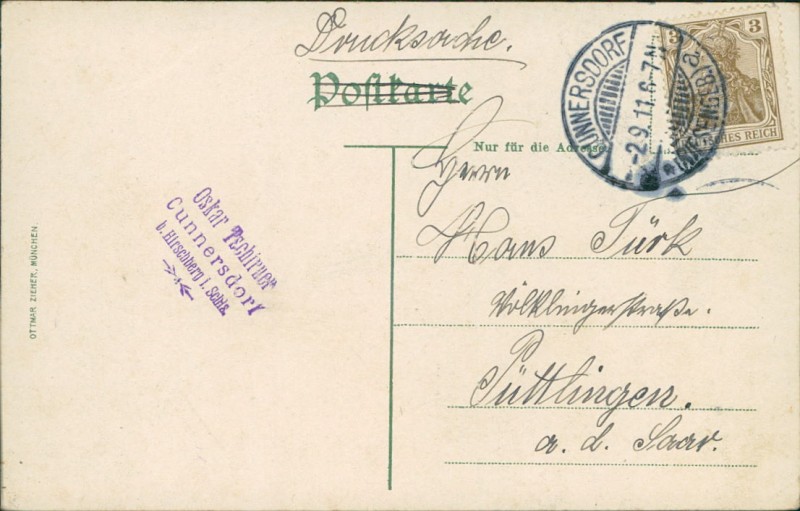 Drucksache.
Postkarte
Nur für die Adresse
CUNNERSDORF
-2.9.11.6-7N.
3 3
DEUTSCHES REICH
Herrn
Hans Türk
Völklingerstraße.
Püttlingen.
a. d. Saar.
Oskar Tschirner
Cunnersdorf
b. Hirschberg i. Schls
OTTMAR ZIEHER, MÜNCHEN.